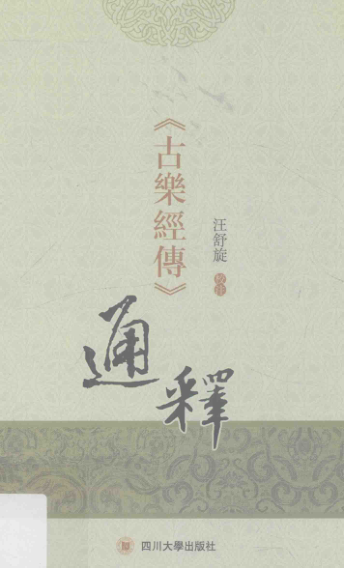 《古樂經傳》
通釋
汪舒旋 校注
四川大學出版社